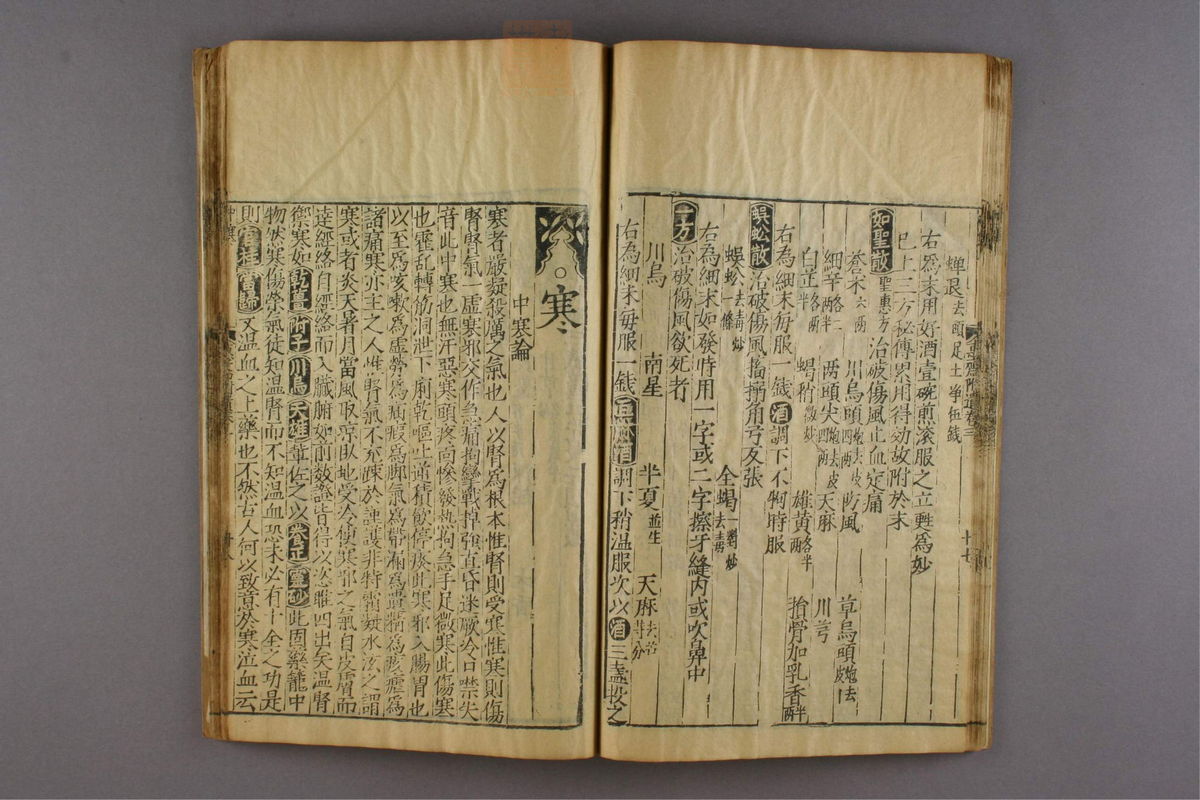 蟬退去頭足土淨伍錢
右爲末用好酒壹碗煎滾服之立甦爲妙
已上三方秘傳累用得効故附於末
如聖散 聖惠方 治破傷風止血定痛
蒼朮六兩 川烏頭炮去皮四兩 防風 草烏頭炮去皮
細辛各二兩半 兩頭尖炮去皮四兩 天麻 川芎
白芷各兩半 蝎稍微炒 雄黃各半兩 搶骨加乳香半兩
右為細末每服一錢酒調下不拘時服
蜈蚣散 治破傷風搐搦角弓反張
蜈蚣去毒炒一條 全蝎一對炒去毒
右為細末如發時用一字或二字擦牙縫内或吹鼻中
一方 治破傷風欲死者
川烏 南星 半夏並生 天麻去芦等分
右為細末每服一錢豆淋酒調下稍温服次以酒三盞投之
十七
寒
中寒論
寒者嚴凝殺厲之氣也人以腎爲根本惟腎則受寒惟寒則傷
腎腎氣一虛寒邪交作急痛拘攣戰掉強直昏迷厥冷口噤失
音此中寒也無汗惡寒頭疼面慘發熱拘急手足微寒此傷寒
也霍乱轉筋洞泄下痢乾嘔吐逆積飲停痰此寒邪入腸胃也
以至爲咳嗽爲虛勞爲痛瘕爲脚氣爲帶漏爲遺精爲痎瘧爲
諸痛寒亦主之人惟腎氣不充疎於謹護非特霜凝水冱之謂
寒或者炎天暑月當風取凉臥地受冷使寒邪之氣自皮膚而
達經絡自經絡而入臓腑如前數證皆得以恣睢四出夫温腎
禦寒如乾薑附子川烏天雄輩佐之以養正靈砂此固藥籠中
物然寒傷榮氣徒知温腎而不知温血恐未必有十全之功是
則官桂當歸又温血之上藥也不然古人何以致意於寒泣血云
十八